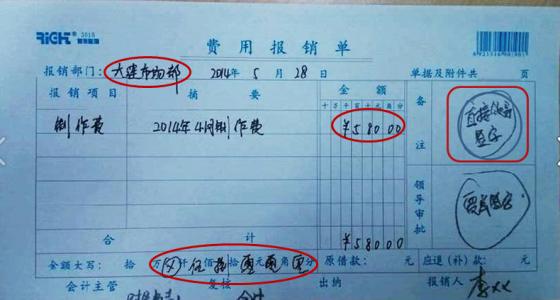 RiCHT 2015
费用报销单
报销部门：大连市场部 2014年 5月 28日 单据及附件共 页
报销项目 摘要 金额 备注
十万千百十元角分
制作费 2014年4月制作费 ¥58000
直接领导签字
领导审批
合计 ¥58000
金额大写： 拾 万 仟 伍佰 捌拾 零元 零角 零分 原借款： 元 应退（补）款： 元
会计主管 复核 会计 出纳 报销人 李